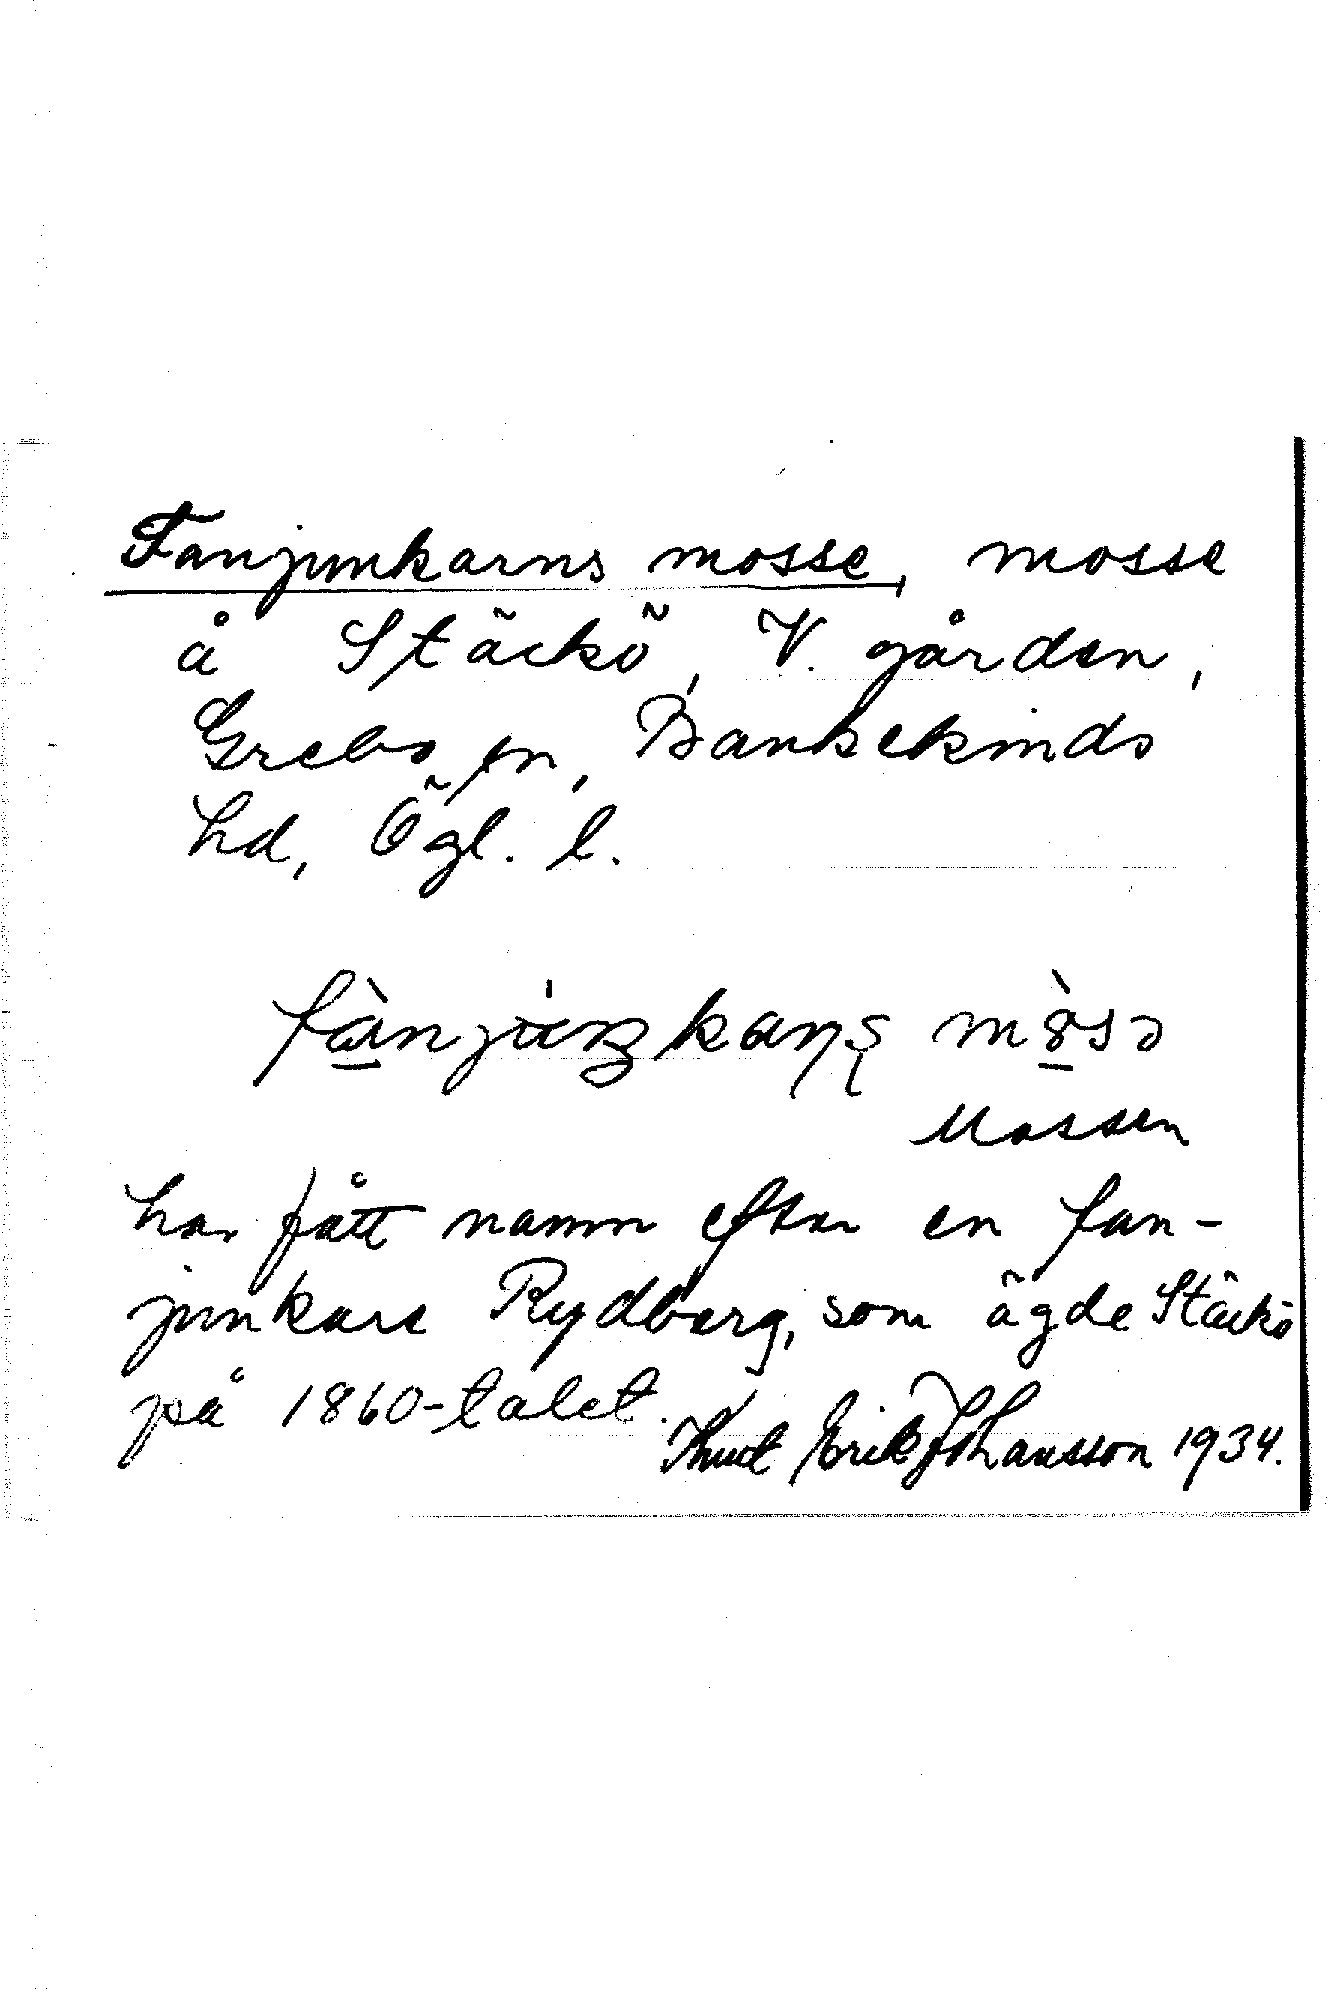 Fanjunkarns mosse, mosse
å Stäckö, V. gården,
Grebo sn, Bankekinds
hd, Ögl. l.
fànjùŋkaṇṣ mòsə
Mossen
har fått namn efter en fan-
junkare Rydberg, som ägde Stäckö
på 1860-talet.
Knut Erik Johansson 1934.